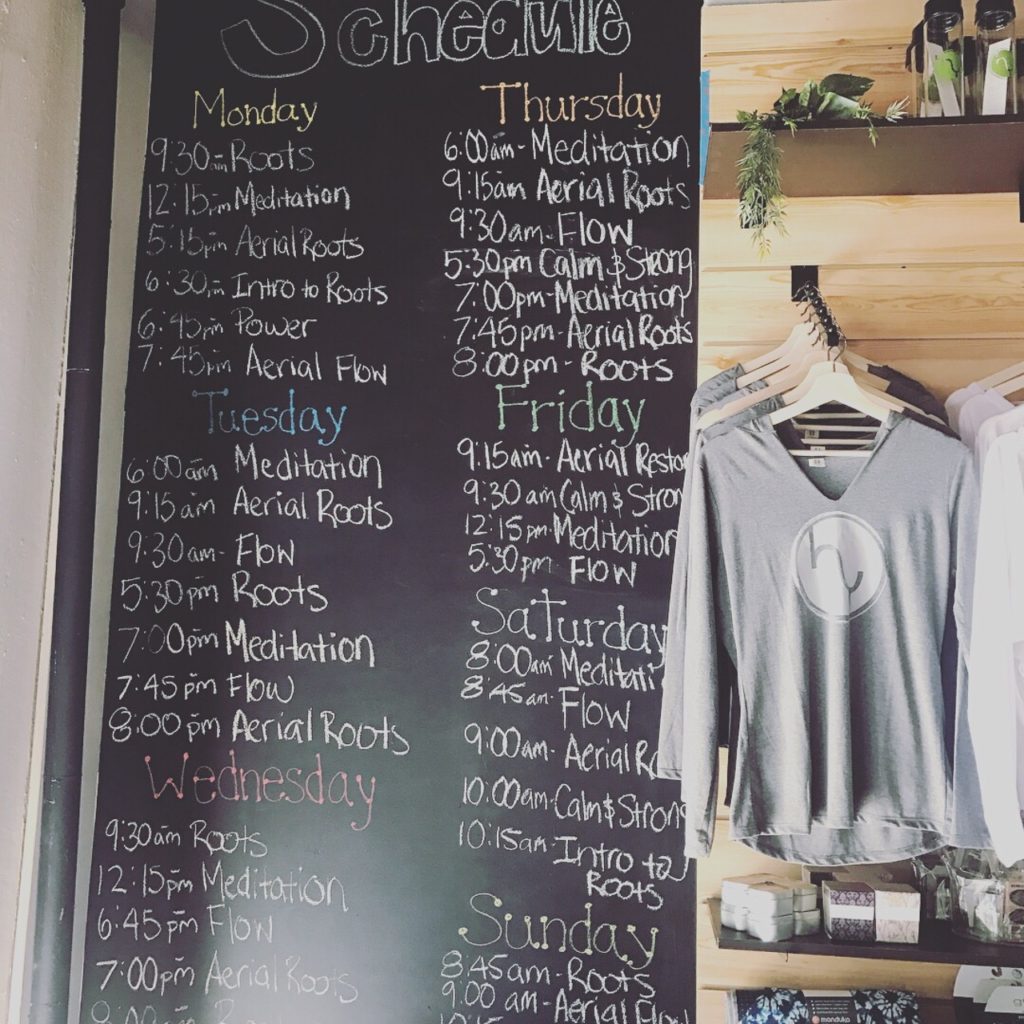 Schedule
Monday
9:30am Roots
12:15pm Meditation
5:15pm Aerial Roots
6:30pm Intro to Roots
6:45pm Power
7:45pm Aerial Flow
Tuesday
6:00am Meditation
9:15am Aerial Roots
9:30am- Flow
5:30pm Roots
7:00pm Meditation
7:45pm Flow
8:00pm Aerial Roots
Wednesday
9:30am Roots
12:15pm Meditation
6:45pm Flow
7:00pm Aerial Roots
8:00pm Roots
Thursday
6:00am- Meditation
9:15am Aerial Roots
9:30am- Flow
5:30pm Calm & Strong
7:00pm- Meditation
7:45pm- Aerial Roots
8:00pm- Roots
Friday
9:15am- Aerial Resto
9:30am Calm & Stron
12:15pm- Meditation
5:30pm- Flow
Saturday
8:00am Meditati
8:45am- Flow
9:00am- Aerial Ro
10:00am- Calm & Strong
10:15am- Intro to
Roots
Sunday
8:45am- Roots
9:00am- Aerial
h
manduka